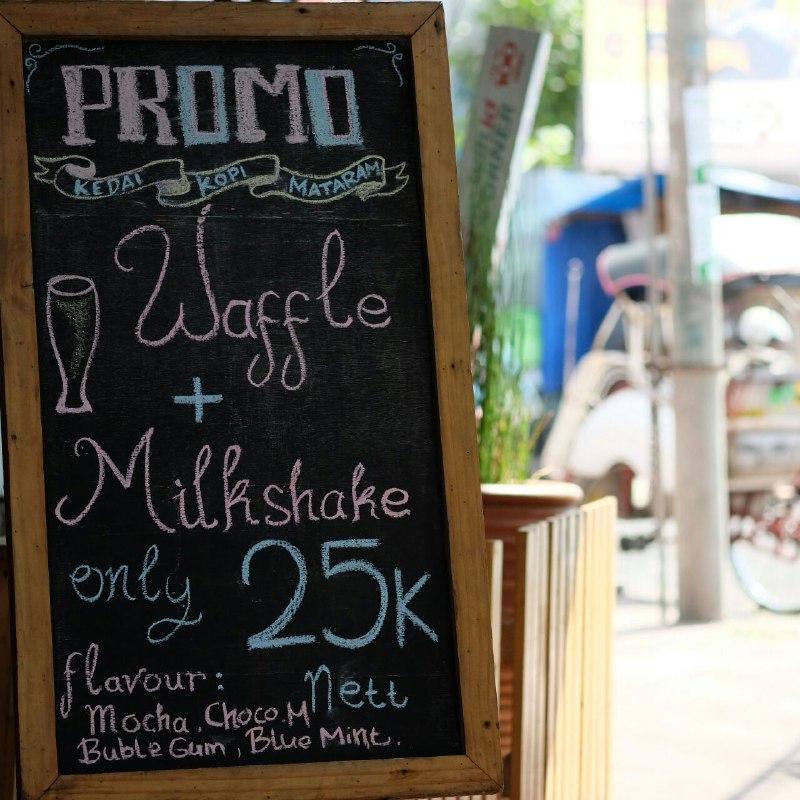 PROMO
KEDAI KOPI MATARAM
Waffle
+
Milkshake
only 25K
flavour: Nett
Mocha, Choco.M
Buble Gum, Blue Mint.